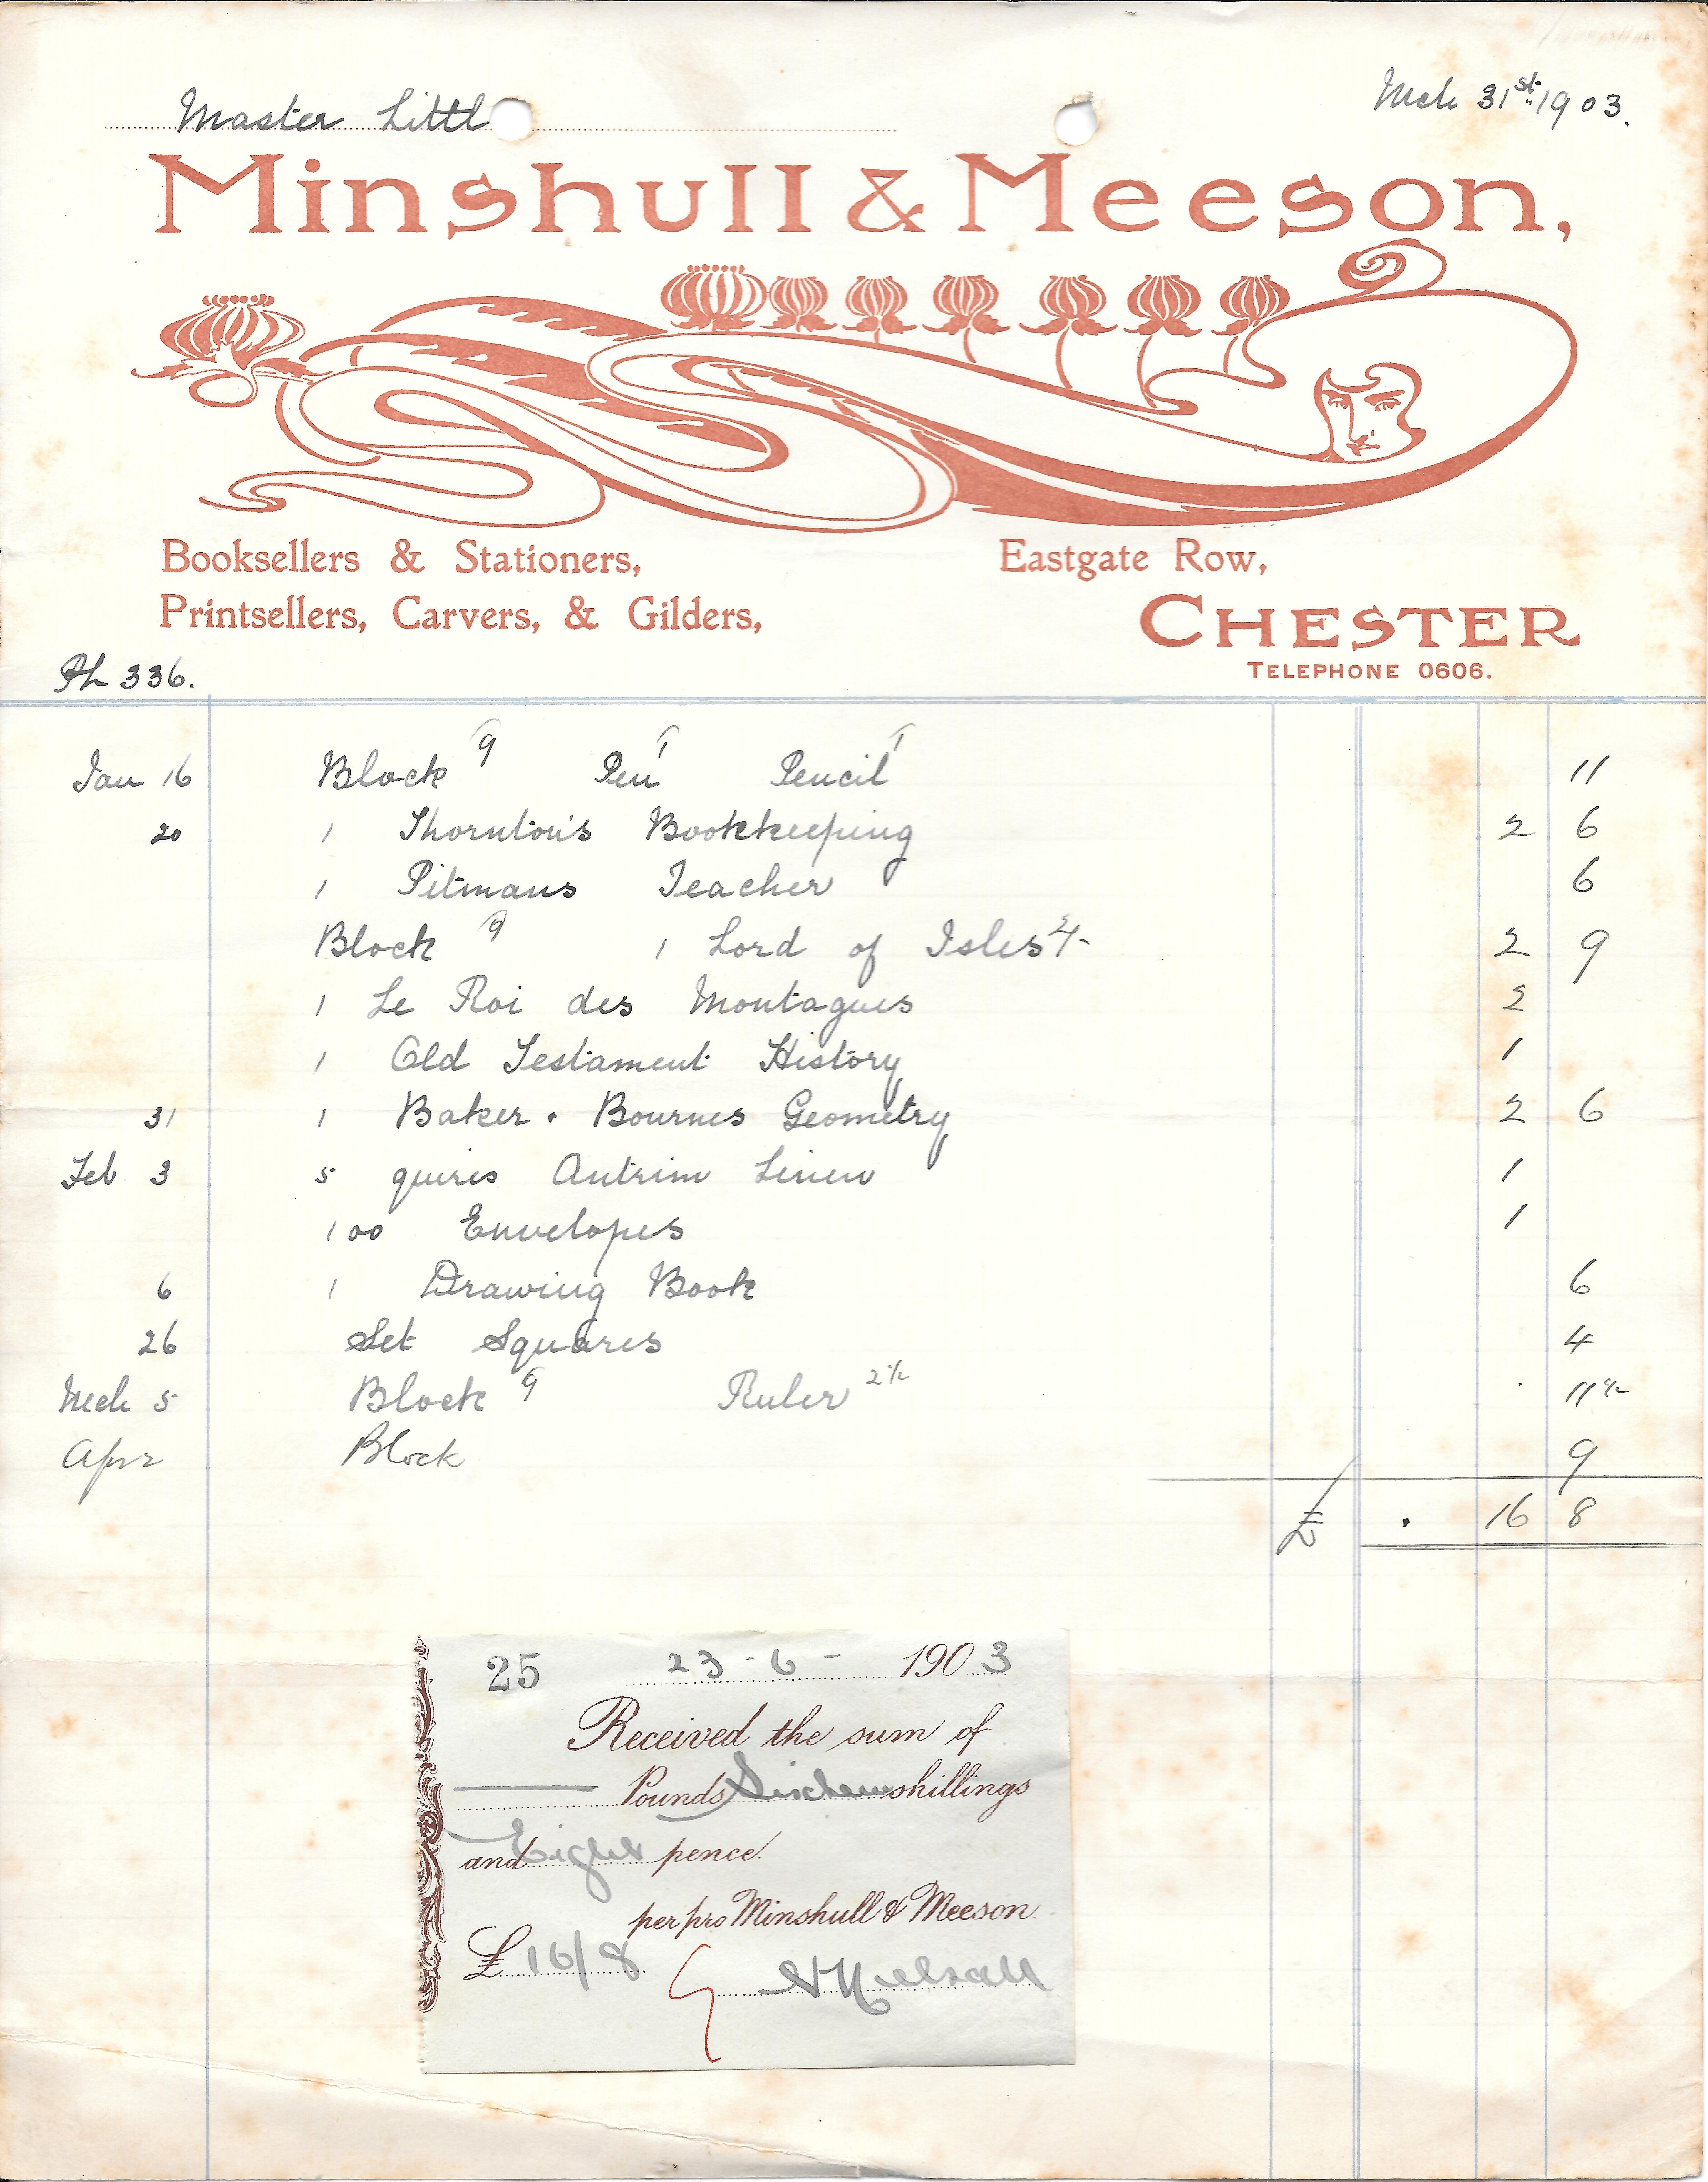 Master Littl
Mch 31st 1903.
Minshull & Meeson,
Booksellers & Stationers,
Printsellers, Carvers, & Gilders,
Eastgate Row,
CHESTER
TELEPHONE 0606.
336.
Jan 16 Block 9 Pen 1 Pencil 1 11
20 1 Thornton's Bookkeeping 2 6
1 Pitmans Teacher 6
Block 9 1 Lord of Isles 2/- 2 9
1 Le Roi des Montagues 2
1 Old Testament History 1
31 1 Baker . Bournes Geometry 2 6
Feb 3 5 quires Antrim Linen 1
100 Envelopes 1
6 1 Drawing Book 6
26 Set Squares 4
Mch 5 Block 9 Ruler 2½ 11½
Apr 2 Block 9
£ . 16 8
25 23-6- 1903
Received the sum of
Pounds Sixteen shillings
and Eight pence
per pro Minshull & Meeson
£ 16/8